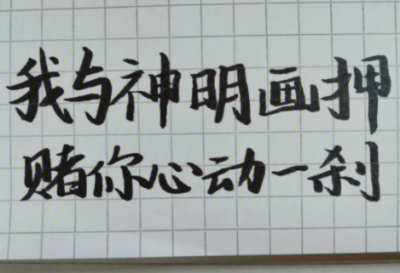 我与神明画押
赌你心动一刹